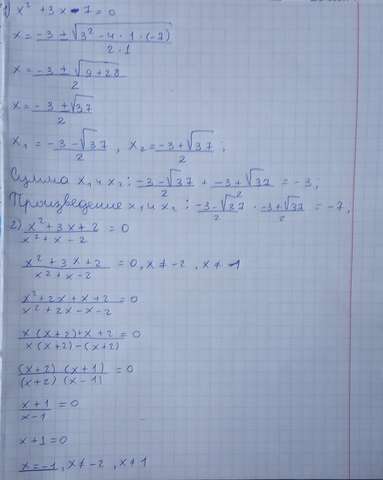 1) x² + 3x - 7 = 0
x = (-3 ± √(3² - 4 · 1 · (-7))) / (2 · 1)
x = (-3 ± √(9 + 28)) / 2
x = (-3 ± √37) / 2
x₁ = (-3 - √37) / 2 , x₂ = (-3 + √37) / 2 ;
Сумма x₁ и x₂ : (-3 - √37) / 2 + (-3 + √37) / 2 = -3 ;
Произведение x₁ и x₂ : (-3 - √27) / 2 · (-3 + √37) / 2 = -7,
2) (x² + 3x + 2) / (x² + x - 2) = 0
(x² + 3x + 2) / (x² + x - 2) = 0, x ≠ -2 , x ≠ 1
(x² + 2x + x + 2) / (x² + 2x - x - 2) = 0
(x (x + 2) + x + 2) / (x (x + 2) - (x + 2)) = 0
((x + 2) (x + 1)) / ((x + 2) (x - 1)) = 0
(x + 1) / (x - 1) = 0
x + 1 = 0
x = -1 , x ≠ -2 , x ≠ 1